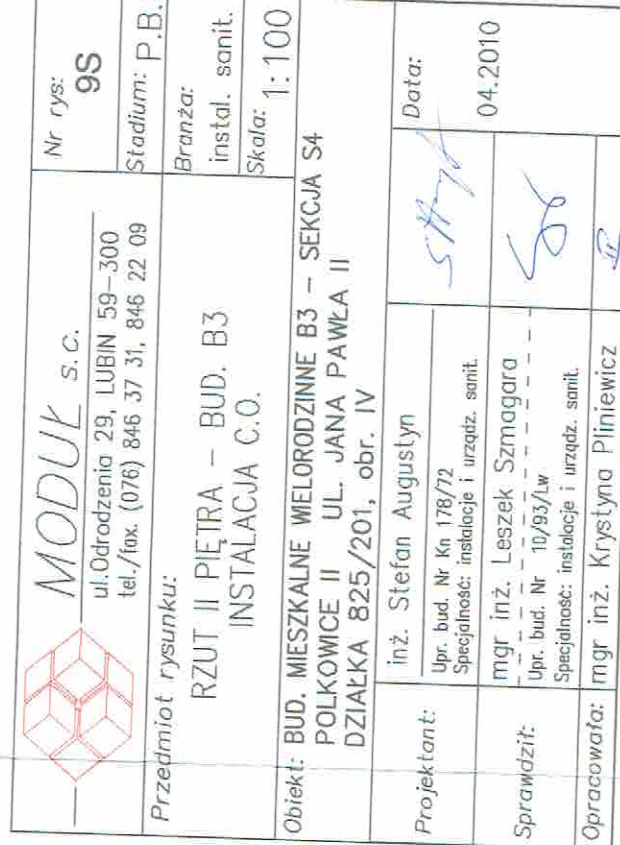 MODUŁ s.c.
ul.Odrodzenia 29, LUBIN 59-300
tel./fax. (076) 846 37 31, 846 22 09
Nr rys:
9S
Przedmiot rysunku:
RZUT II PIĘTRA – BUD. B3
INSTALACJA C.O.
Stadium: P.B.
Branża:
instal. sanit.
Skala: 1:100
Obiekt: BUD. MIESZKALNE WIELORODZINNE B3 – SEKCJA S4
POLKOWICE II UL. JANA PAWŁA II
DZIAŁKA 825/201, obr. IV
Projektant:
inż. Stefan Augustyn
Upr. bud. Nr Kn 178/72
Specjalność: instalacje i urządz. sanit.
Data:
04.2010
Sprawdził:
mgr inż. Leszek Szmagara
Upr. bud. Nr 10/93/Lw
Specjalność: instalacje i urządz. sanit.
Opracowała: mgr inż. Krystyna Pliniewicz